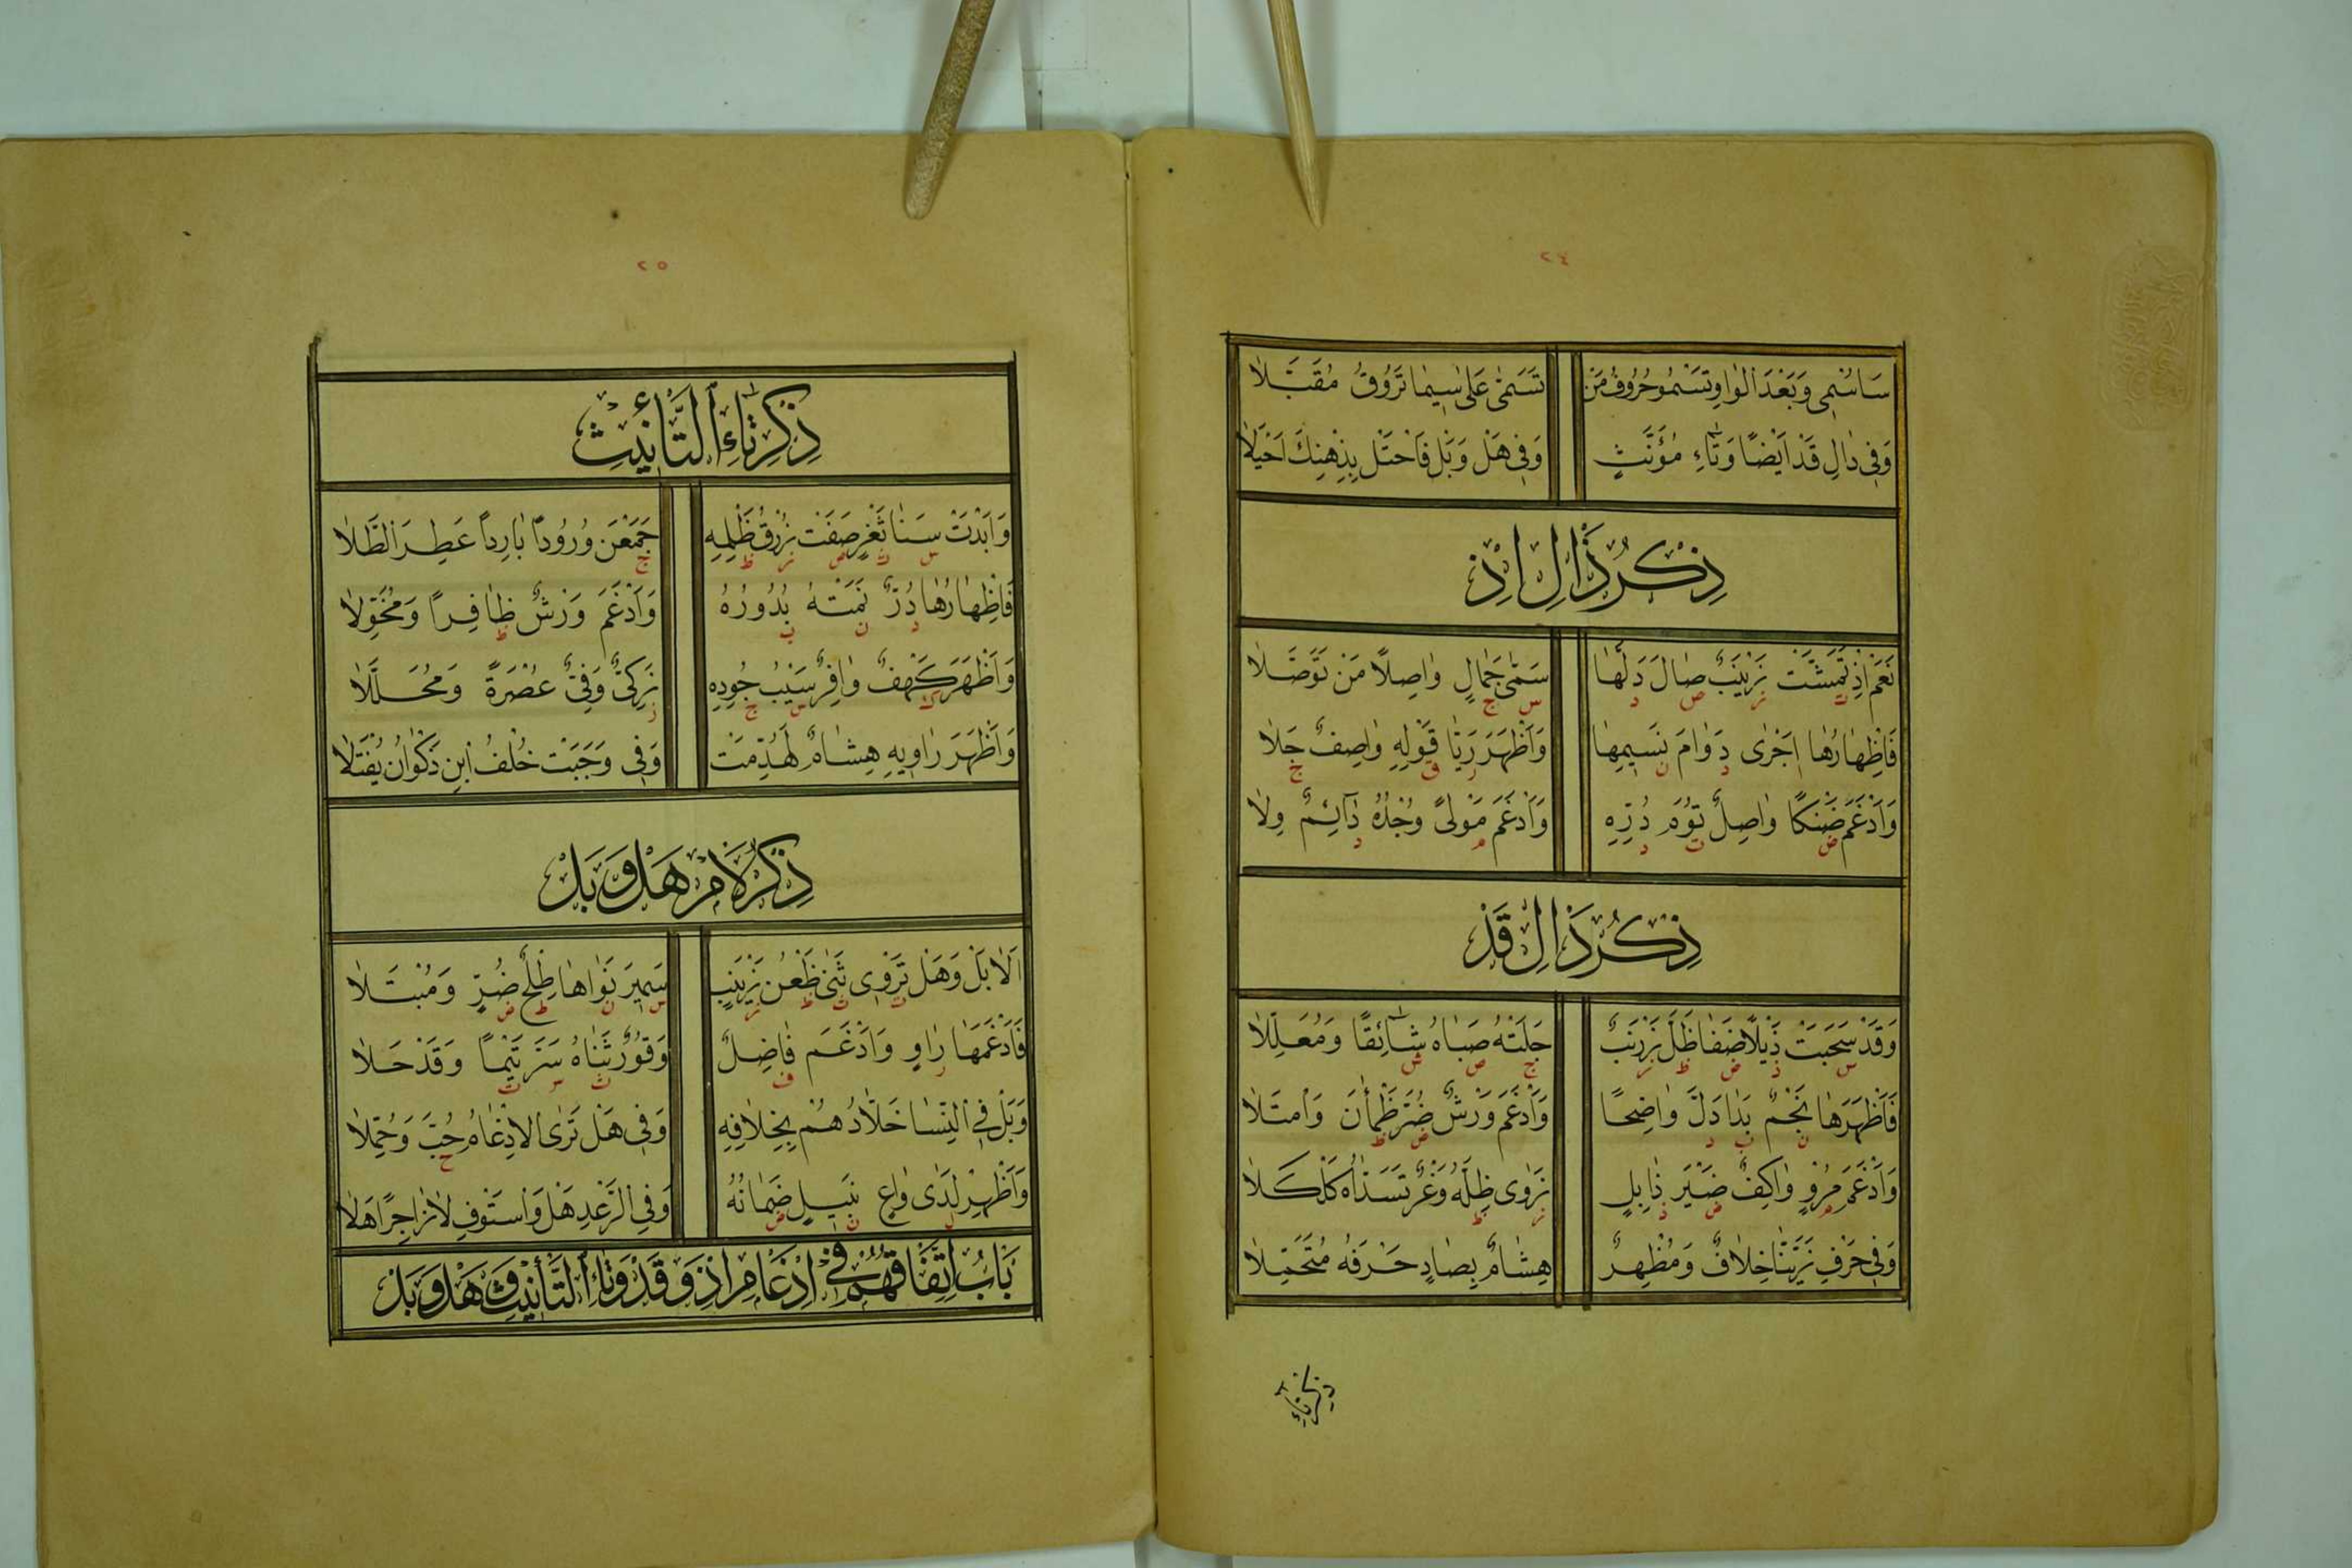 ٢٤
سَاُسْمِى وَبَعْدَ الْوَاوِ تَسْمُو حُرُوفُ مَنْ تَسَمّٰى عَلٰى سِيمَا تَرُوقُ مُقَبَّلَا
وَفِى دَالِ قَدْ اَيْضًا وَتَاءِ مُؤَنَّثٍ وَفِى هَلْ وَبَلْ فَاحْتَلْ بِذِهْنِكَ اَحْيَلَا
ذِكْرُ ذَالِ اِذْ
نَعَمْ اِذْ تَمَشَّتْ زَيْنَبٌ صَالَ دَلُّهَا سَمِىَّ جَمَالٍ وَاصِلًا مَنْ تَوَصَّلَا
ت ز ص د س ج
فَاِظْهَارُهَا اَجْرٰى دَوَامَ نَسِيمِهَا وَاَظْهَرَ رَيَّا قَوْلِهِ وَاصِفٌ جَلَا
ا د ن ر ق ج
وَاَدْغَمَ ضَنْكًا وَاصِلٌ تُوْمَ دُرِّهِ وَاَدْغَمَ مَوْلًى وُجْدُهُ دَآئِمٌ وِلَا
ض ت د م د
ذِكْرُ دَالِ قَدْ
وَقَدْ سَحَبَتْ ذَيْلًا ضَفَا ظَلَّ زَرْنَبٌ جَلَتْهُ صَبَاهُ شَائِقًا وَمُعَلِّلَا
س ذ ض ظ ز ج ص ش
فَاَظْهَرَهَا نَجْمٌ بَدَا دَلَّ وَاضِحًا وَاَدْغَمَ وَرْشٌ ضُرَّ ظَمْاٰنَ وَامْتَلَا
ن ب د ض ظ
وَاَدْغَمَ مُرْوٍ وَاكِفٌ ضَيْرَ ذَابِلٍ زَوٰى ظِلَّهُ وَغْرٌ تَسَدَّاهُ كَلْكَلَا
م ض ذ ز ظ
وَفِى حَرْفِ زَيَّنَّا خِلَافٌ وَمُظْهِرٌ هِشَامٌ بِصَادٍ حَرْفَهُ مُتَحَمِّلَا
ذكر تاء
٢٥
ذِكْرُ تَاءِ التَّأْنِيثِ
وَاَبْدَتْ سَنَا ثَغْرٍ صَفَتْ زُرْقُ ظَلْمِهِ جَمَعْنَ وُرُودًا بَارِدًا عَطِرَ الطَّلَا
س ث ص ز ظ ج
فَاِظْهَارُهَا دُرٌّ نَمَتْهُ بُدُورُهُ وَاَدْغَمَ وَرْشٌ ظَافِرًا وَمُخَوَّلَا
د ن ب ظ
وَاَظْهَرَ كَهْفٌ وَافِرٌ سَيْبُ جُودِهِ زَكِىٌّ وَفِىٌّ عُصْرَةً وَمُحَلَّلَا
ك س ج ز
وَاَظْهَرَ رَاوِيهِ هِشَامٌ لَهُدِّمَتْ وَفِى وَجَبَتْ خُلْفُ ابْنِ ذَكْوَانَ يُفْتَلَا
ذِكْرُ لَامِ هَلْ وَبَلْ
اَلَا بَلْ وَهَلْ تَرْوِى ثَنٰى ظَعْنِ زَيْنَبٍ سَمِيرَ نَوَاهَا طِلْحَ ضُرٍّ وَمُبْتَلَا
ت ث ظ ز س ن ط ض
فَاَدْغَمَهَا رَاوٍ وَاَدْغَمَ فَاضِلٌ وَقُورٌ ثَنَاهُ سَرَّ تَيْمًا وَقَدْ حَلَا
ر ف ث س ت
وَبَلْ فِى النِّسَا خَلَّادُهُمْ بِخِلَافِهِ وَفِى هَلْ تَرَى الْاِدْغَامُ حُبَّ وَحُمِّلَا
ح
وَاَظْهِرْ لَدٰى وَاعٍ نَبِيلٍ ضَمَانُهُ وَفِى الرَّعْدِ هَلْ وَاسْتَوْفِ لَا زَاجِرًا هَلَا
ل ن ض
بَابُ اتِّفَاقِهِمْ فِى اِدْغَامِ اِذْ وَقَدْ وَتَاءِ التَّأْنِيثِ وَهَلْ وَبَلْ